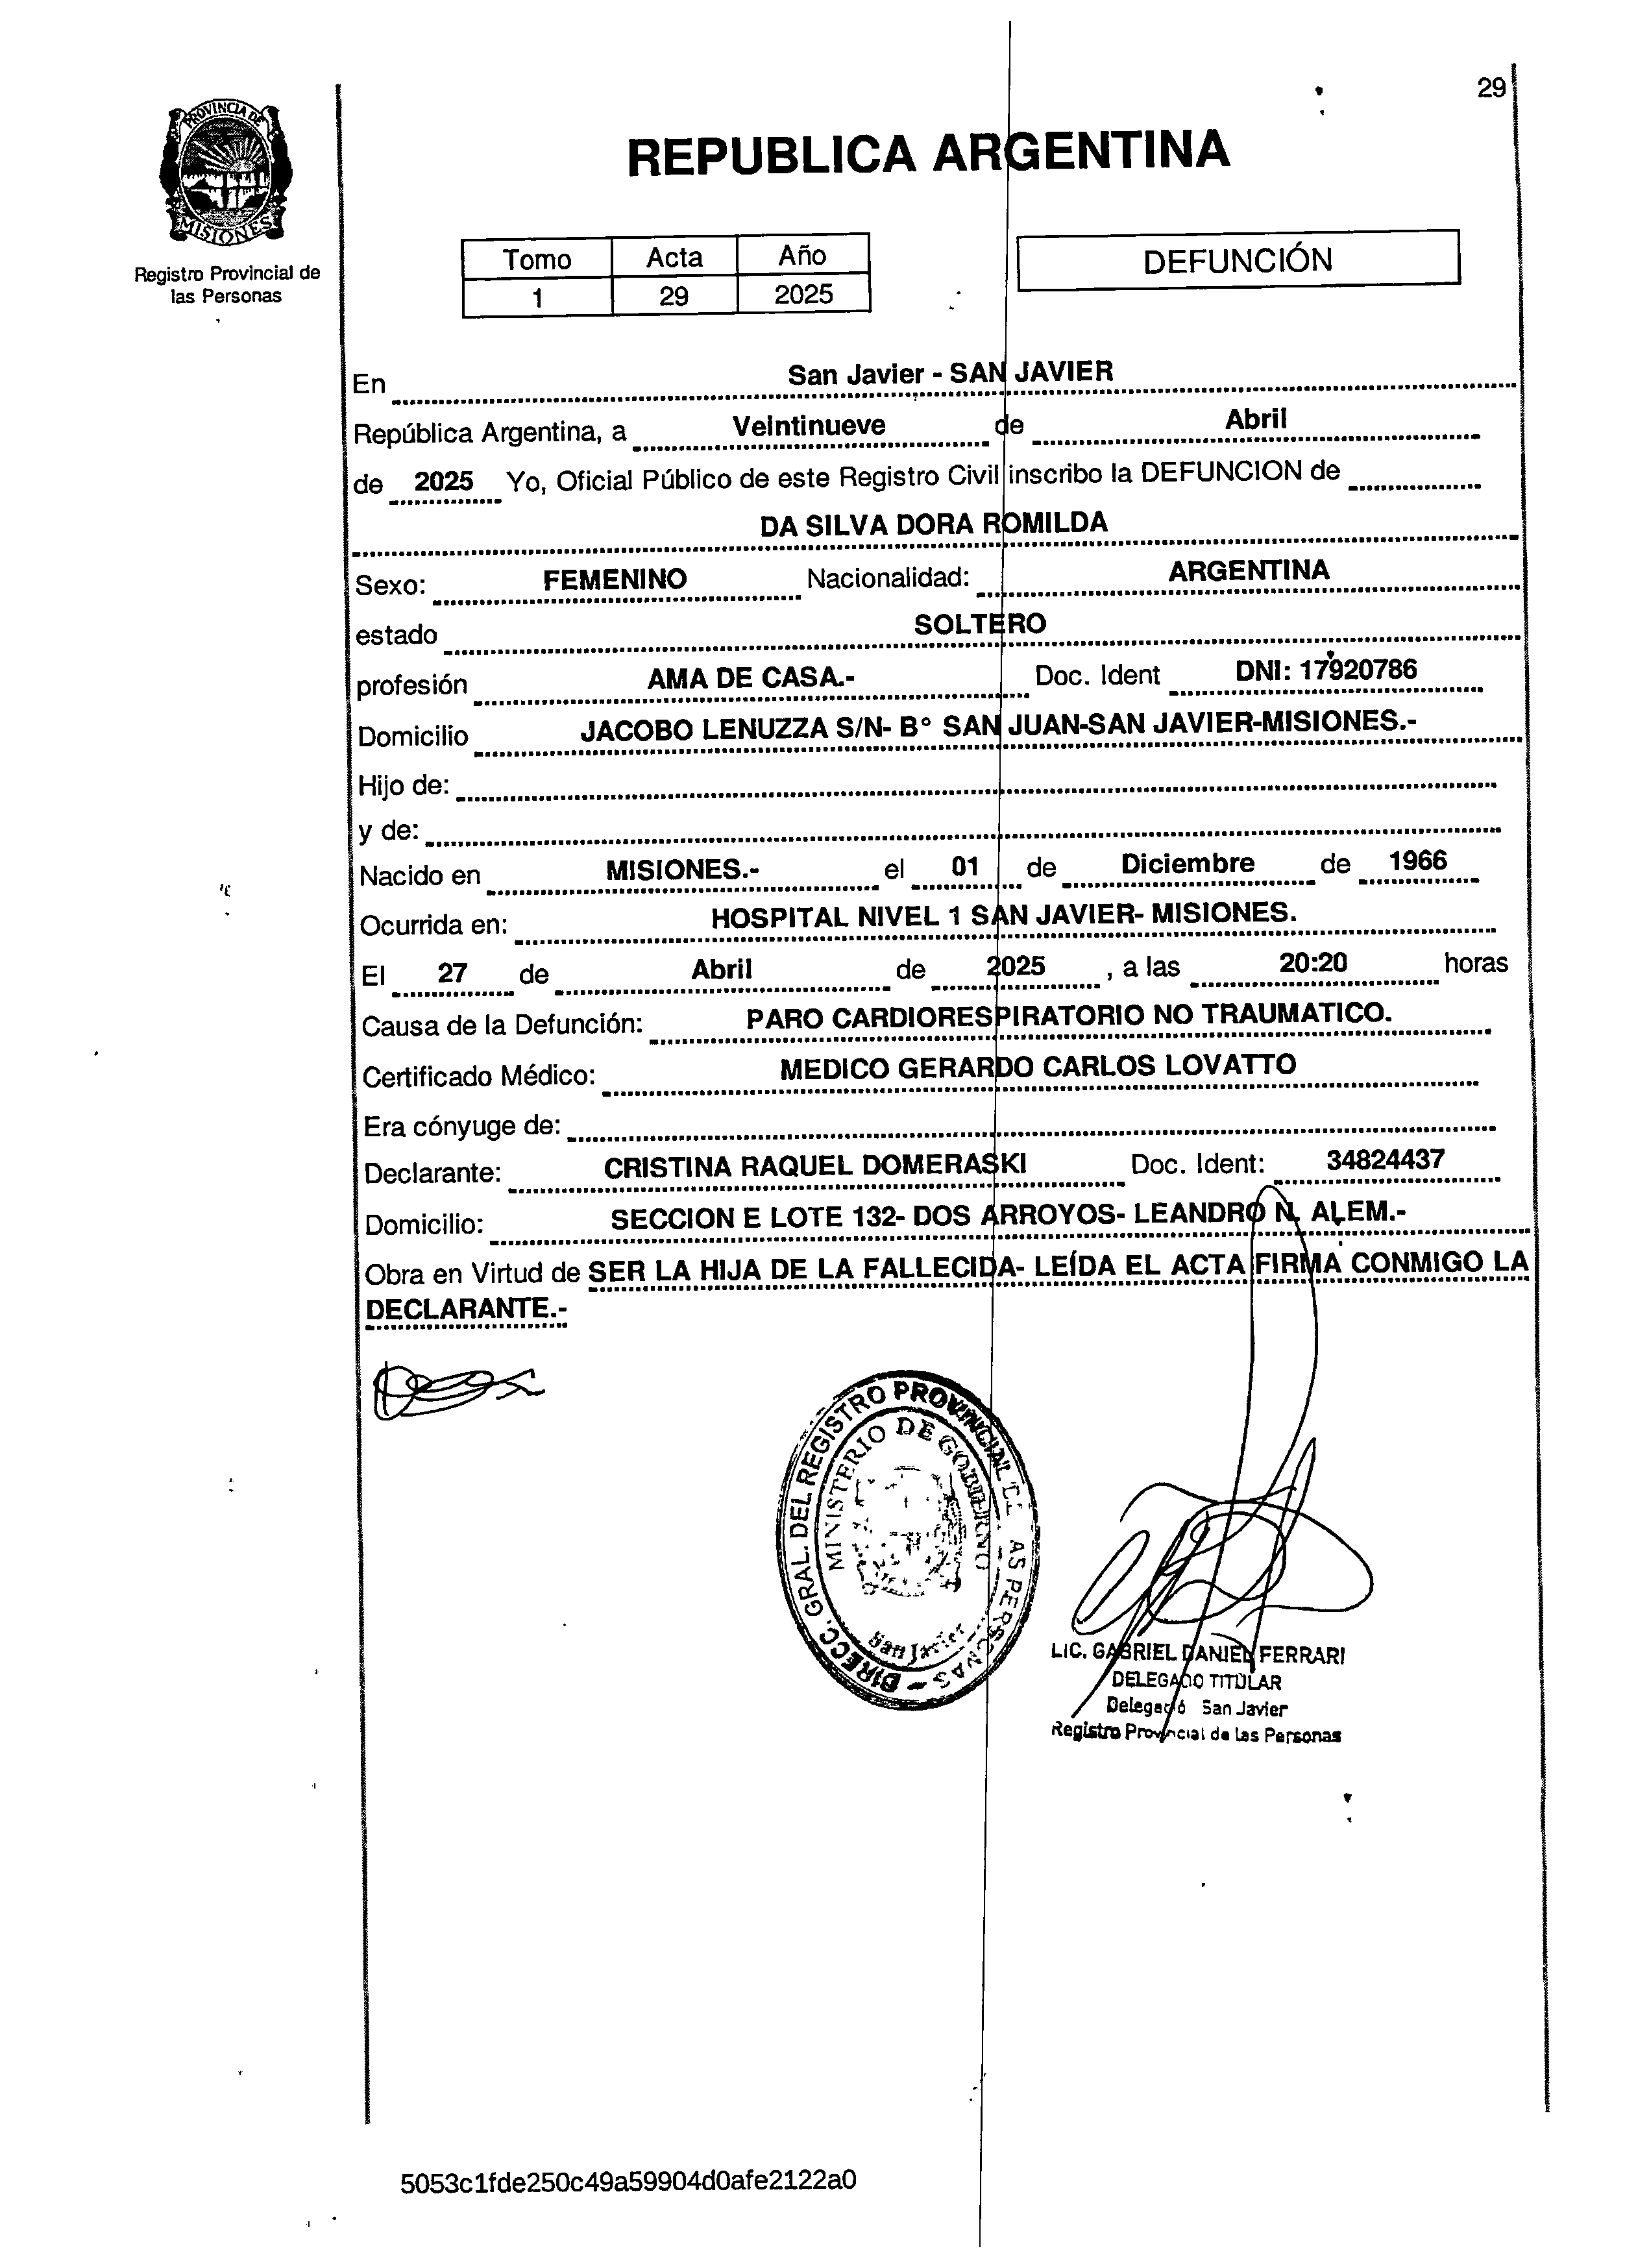 29
PROVINCIA DE
MISIONES
Registro Provincial de
las Personas
REPUBLICA ARGENTINA
Tomo Acta Año
1 29 2025
DEFUNCIÓN
En San Javier - SAN JAVIER
República Argentina, a Veintinueve de Abril
de 2025 Yo, Oficial Público de este Registro Civil inscribo la DEFUNCION de
DA SILVA DORA ROMILDA
Sexo: FEMENINO Nacionalidad: ARGENTINA
estado SOLTERO
profesión AMA DE CASA.- Doc. Ident DNI: 17920786
Domicilio JACOBO LENUZZA S/N- B° SAN JUAN-SAN JAVIER-MISIONES.-
Hijo de:
y de:
Nacido en MISIONES.- el 01 de Diciembre de 1966
Ocurrida en: HOSPITAL NIVEL 1 SAN JAVIER- MISIONES.
El 27 de Abril de 2025 , a las 20:20 horas
Causa de la Defunción: PARO CARDIORESPIRATORIO NO TRAUMATICO.
Certificado Médico: MEDICO GERARDO CARLOS LOVATTO
Era cónyuge de:
Declarante: CRISTINA RAQUEL DOMERASKI Doc. Ident: 34824437
Domicilio: SECCION E LOTE 132- DOS ARROYOS- LEANDRO N. ALEM.-
Obra en Virtud de SER LA HIJA DE LA FALLECIDA- LEÍDA EL ACTA FIRMA CONMIGO LA
DECLARANTE.-
DIRECC. GRAL. DEL REGISTRO PROVINCIAL DE LAS PERSONAS -
MINISTERIO DE GOBIERNO
San Javier
LIC. GABRIEL DANIEL FERRARI
DELEGADO TITULAR
San Javier
Registro Provincial de las Personas
5053c1fde250c49a59904d0afe2122a0